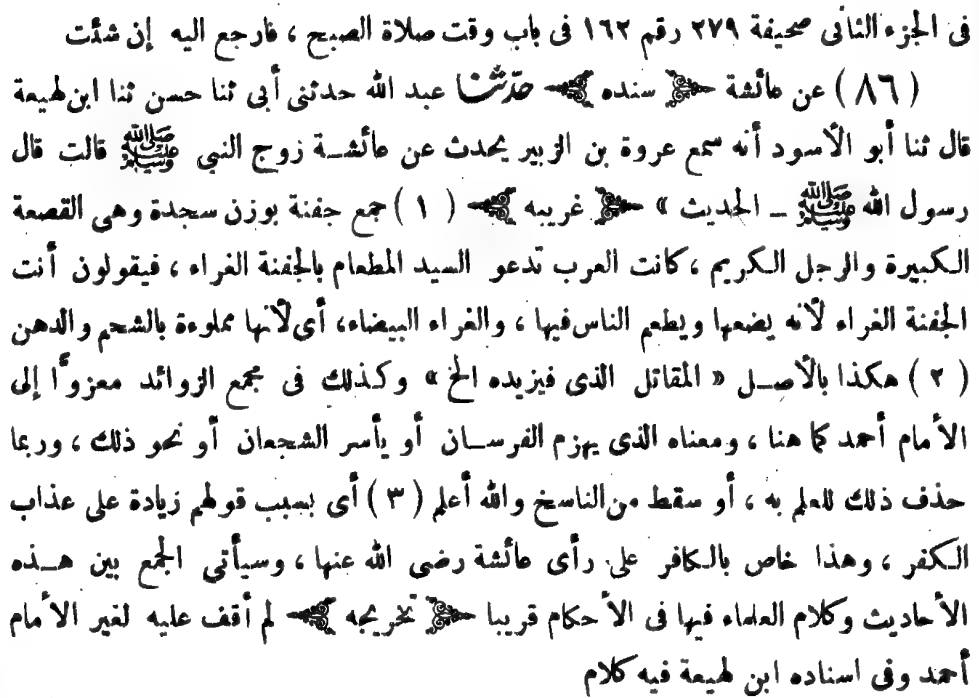 فى الجزء الثانى صحيفة ٢٧٩ رقم ١٦٢ فى باب وقت صلاة الصبح ، فارجع اليه إن شئت
( ٨٦ ) عن عائشة ﴿ سنده ﴾ حدثنا عبد الله حدثنى أبى ثنا حسن ثنا ابن لهيعة
قال ثنا أبو الأسود أنه سمع عروة بن الزبير يحدث عن عائشــة زوج النبي ﷺ قالت قال
رسول الله ﷺ ـ الحديث » ﴿ غريبه ﴾ ( ١ ) جمع جفنة بوزن سجدة وهى القصعة
الكبيرة والرجل الكريم ، كانت العرب تدعو السيد المطعام بالجفنة الغراء ، فيقولون أنت
الجفنة الغراء لأنه يضعها ويطعم الناس فيها ، والغراء البيضاء، أى لأنها مملوءة بالشحم والدهن
( ٢ ) هكذا بالأصــل « المقاتل الذى فيزيده الخ » وكذلك فى مجمع الزوائد معزوًا إلى
الأمام أحمد كما هنا ، ومعناه الذى يهزم الفرســان أو يأسر الشجعان أو نحو ذلك ، وربما
حذف ذلك للعلم به ، أو سقط من الناسخ والله أعلم ( ٣ ) أى بسبب قولهم زيادة على عذاب
الكفر ، وهذا خاص بالكافر على رأى عائشة رضى الله عنها ، وسيأتى الجمع بين هــذه
الأحاديث وكلام العلماء فيها فى الأحكام قريبا ﴿ تخريجه ﴾ لم أقف عليه لغير الأمام
أحمد وفى اسناده ابن لهيعة فيه كلام